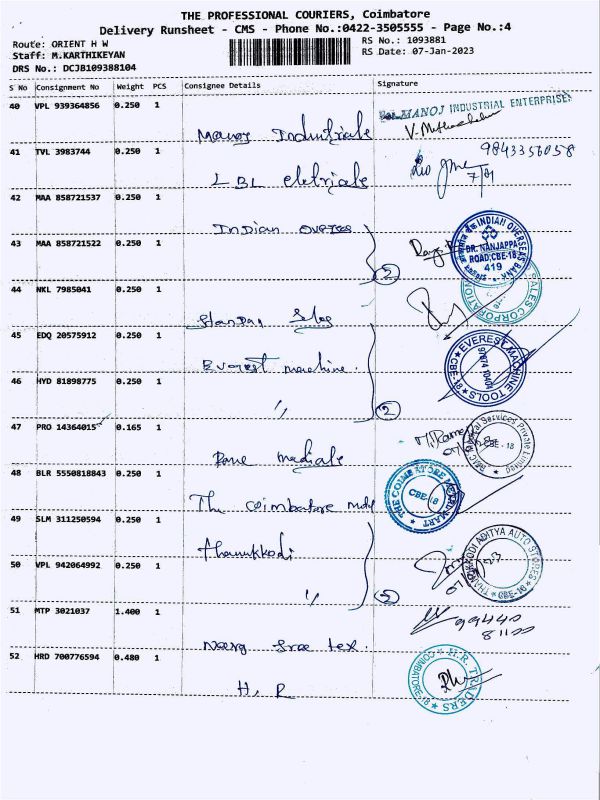 THE PROFESSIONAL COURIERS, Coimbatore
Delivery Runsheet - CMS - Phone No.:0422-3505555 - Page No.:4
Route: ORIENT H W
RS No.: 1093881
Staff: M.KARTHIKEYAN
RS Date: 07-Jan-2023
DRS No.: DCJB109388104
S No Consignment No Weight PCS Consignee Details Signature
40 VPL 939364856 0.250 1
MANOJ INDUSTRIAL ENTERPRISES
Manoj Industrials
41 TVL 3983744 0.250 1
9843356058
LBL
7/01
42 MAA 858721537 0.250 1
Indian
43 MAA 858721522 0.250 1
2
INDIAN OVERSEAS BANK
DR. NANJAPPA
ROAD, CBE-18
419
44 NKL 7985041 0.250 1
SALES CORPORATION
45 EDQ 20575912 0.250 1
Everest machine.
EVEREST MACHINE TOOLS
CBE-18
46 HYD 81898775 0.250 1
"
2
47 PRO 14364015 0.165 1
Services Private Limited
CBE-18
48 BLR 5550818843 0.250 1
The coimbatore
THE COIMBATORE
CBE-18
49 SLM 311250594 0.250 1
50 VPL 942064992 0.250 1
"
ADITYA AUTO STORES
51 MTP 3021037 1.400 1
99440
81100
tex.
52 HRD 700776594 0.480 1
H. R
H.R. TRADERS
COIMBATORE-18